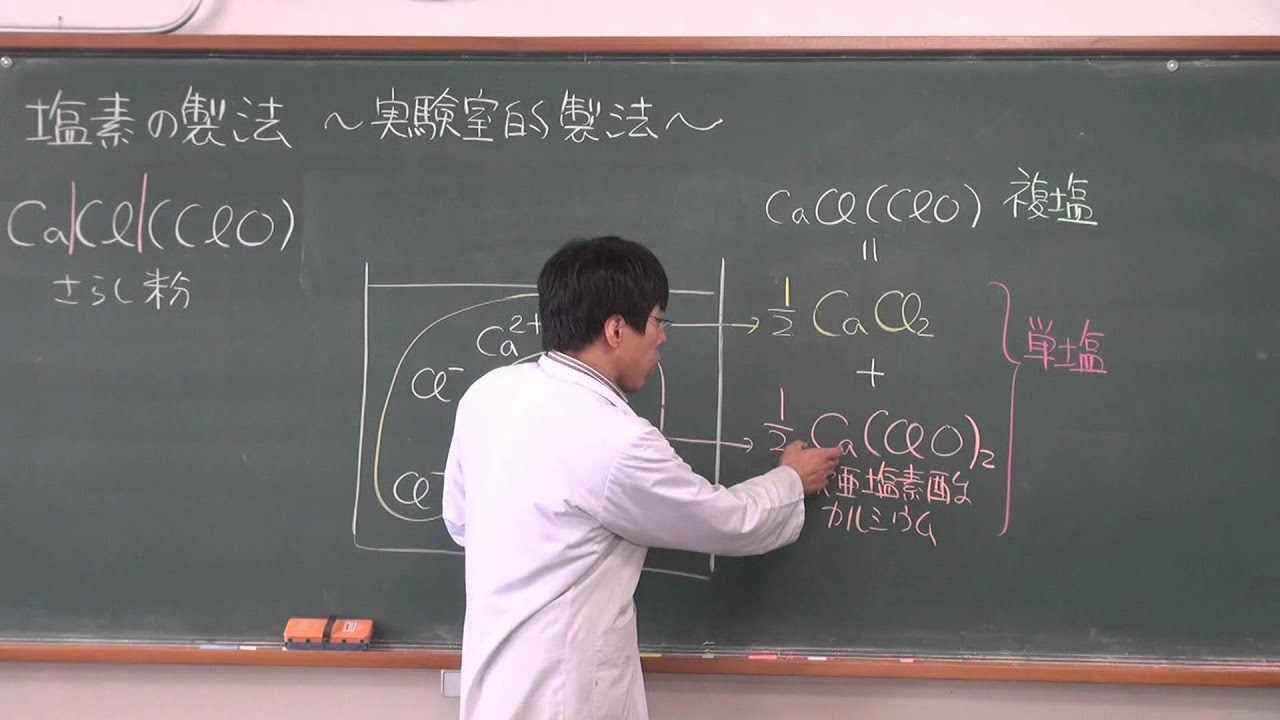 塩素の製法 ～実験室的製法～
CaCl(ClO)
さらし粉
CaCl(ClO) 複塩
=
1/2 CaCl₂
+
1/2 Ca(ClO)₂
亜塩素酸
カルシウム
単塩
Ca²⁺
Cl⁻
Cl⁻